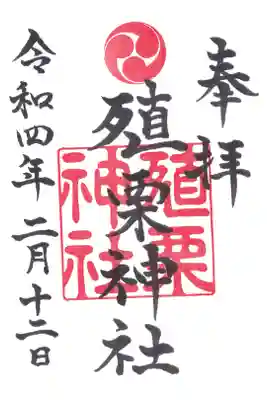 奉拝
殖栗神社
殖栗
神社
令和四年二月十二日